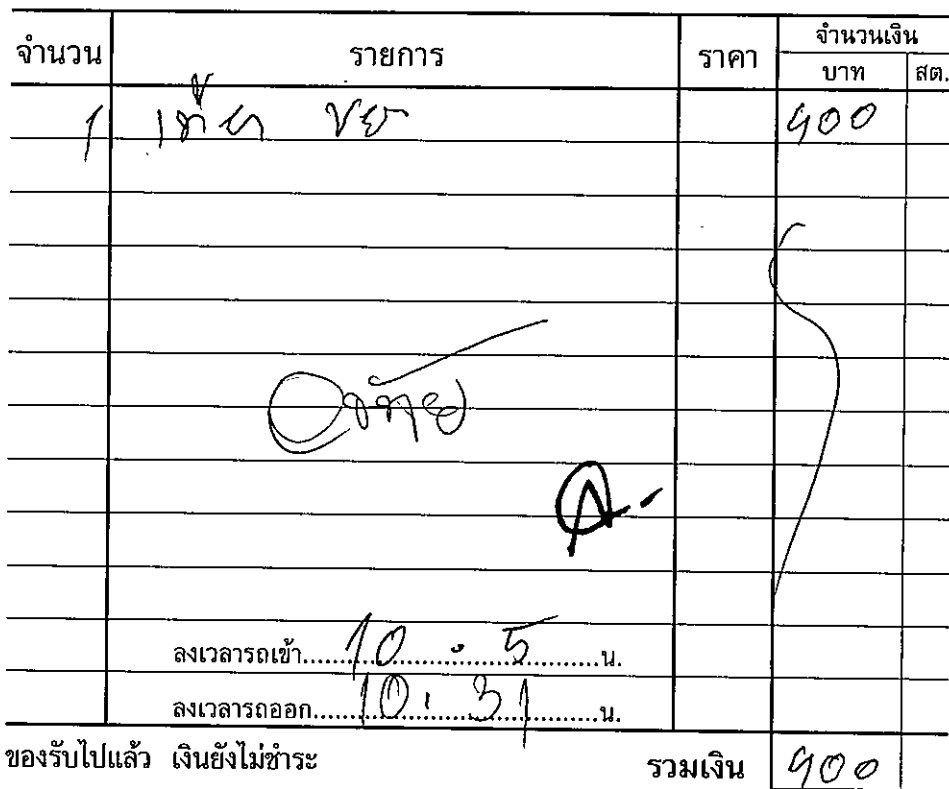 จำนวน รายการ ราคา จำนวนเงิน
บาท สต.
1 900
ลงเวลารถเข้า....10.5....น.
ลงเวลารถออก....10.31....น.
ของรับไปแล้ว เงินยังไม่ชำระ รวมเงิน 900